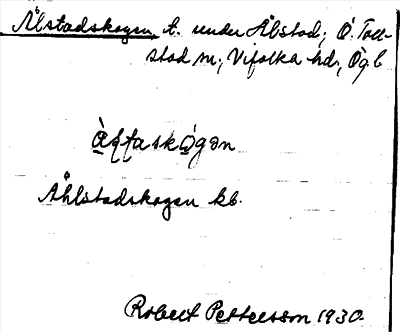 Ålstadskogen, t. under Ålstad; Ö. Toll-
stad sn; Vifolka hd, Ögl
Åhlstadskogen kb.
Robert Pettersson 1930.